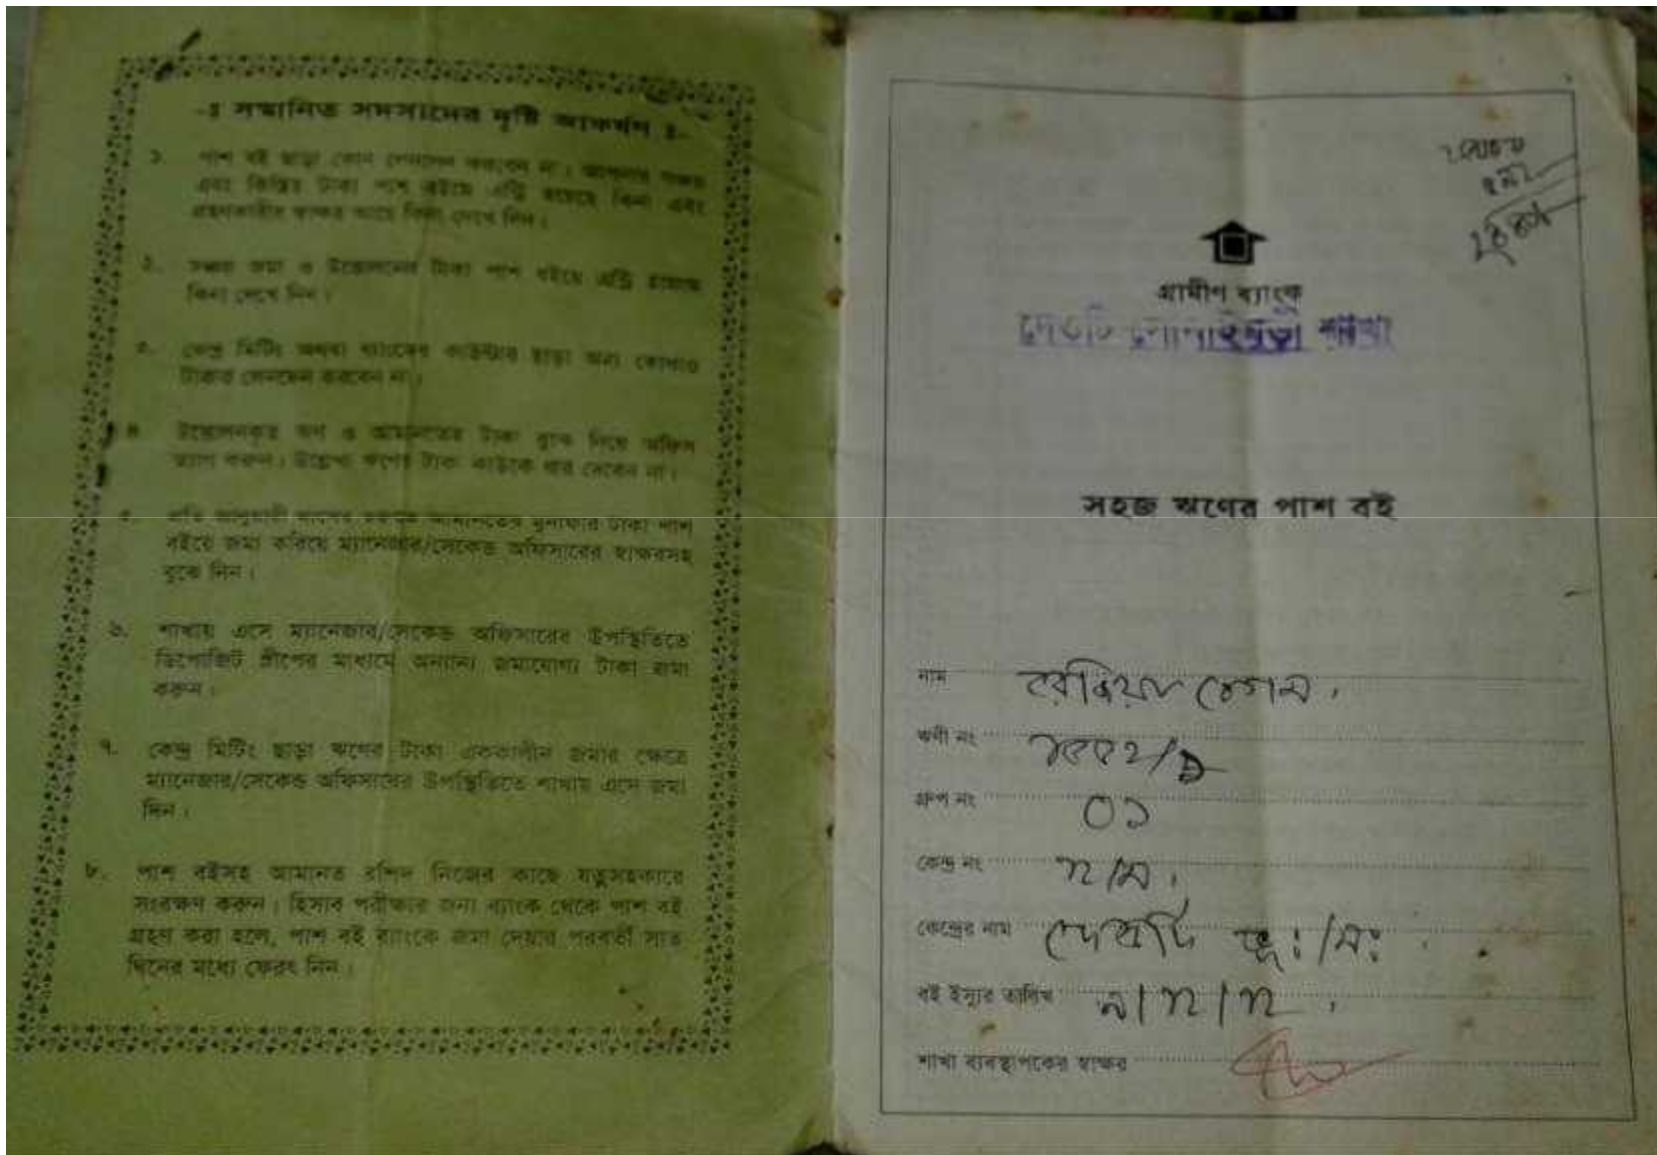 -ঃ সম্মানিত সদস্যদের দৃষ্টি আকর্ষণ ঃ-
১. পাশ বই ছাড়া কোন লেনদেন করবেন না। আপনার সঞ্চয়
এবং কিস্তির টাকা পাশ বইয়ে এন্ট্রি হয়েছে কিনা এবং
গ্রহণকারীর স্বাক্ষর আছে কিনা দেখে নিন।
২. সঞ্চয় জমা ও উত্তোলনের টাকা পাশ বইয়ে এন্ট্রি হয়েছে
কিনা দেখে নিন।
৩. কেন্দ্র মিটিং অথবা ব্যাংকের কাউন্টার ছাড়া অন্য কোথাও
টাকার লেনদেন করবেন না।
৪. উত্তোলনকৃত ঋণ ও আমানতের টাকা বুঝে নিয়ে অফিস
ত্যাগ করুন। উল্লেখ্য ঋণের টাকা কাউকে ধার দেবেন না।
৫. প্রতি জানুয়ারী মাসের আমানতের মুনাফার টাকা পাশ
বইয়ে জমা করিয়ে ম্যানেজার/সেকেন্ড অফিসারের স্বাক্ষরসহ
বুঝে নিন।
৬. শাখায় এসে ম্যানেজার/সেকেন্ড অফিসারের উপস্থিতিতে
ডিপোজিট স্লীপের মাধ্যমে অন্যান্য জমাযোগ্য টাকা জমা
করুন।
৭. কেন্দ্র মিটিং ছাড়া ঋণের টাকা এককালীন জমার ক্ষেত্রে
ম্যানেজার/সেকেন্ড অফিসারের উপস্থিতিতে শাখায় এসে জমা
দিন।
৮. পাশ বইসহ আমানত রশিদ নিজের কাছে যত্নসহকারে
সংরক্ষণ করুন। হিসাব পরীক্ষার জন্য ব্যাংক থেকে পাশ বই
গ্রহণ করা হলে, পাশ বই ব্যাংকে জমা দেয়ার পরবর্তী সাত
দিনের মধ্যে ফেরৎ নিন।
গ্রামীণ ব্যাংক
শাখা
সহজ ঋণের পাশ বই
নাম বেগম
ঋণী নং
গ্রুপ নং ০১
কেন্দ্র নং ৭২/ম
কেন্দ্রের নাম
বই ইস্যুর তারিখ
শাখা ব্যবস্থাপকের স্বাক্ষর